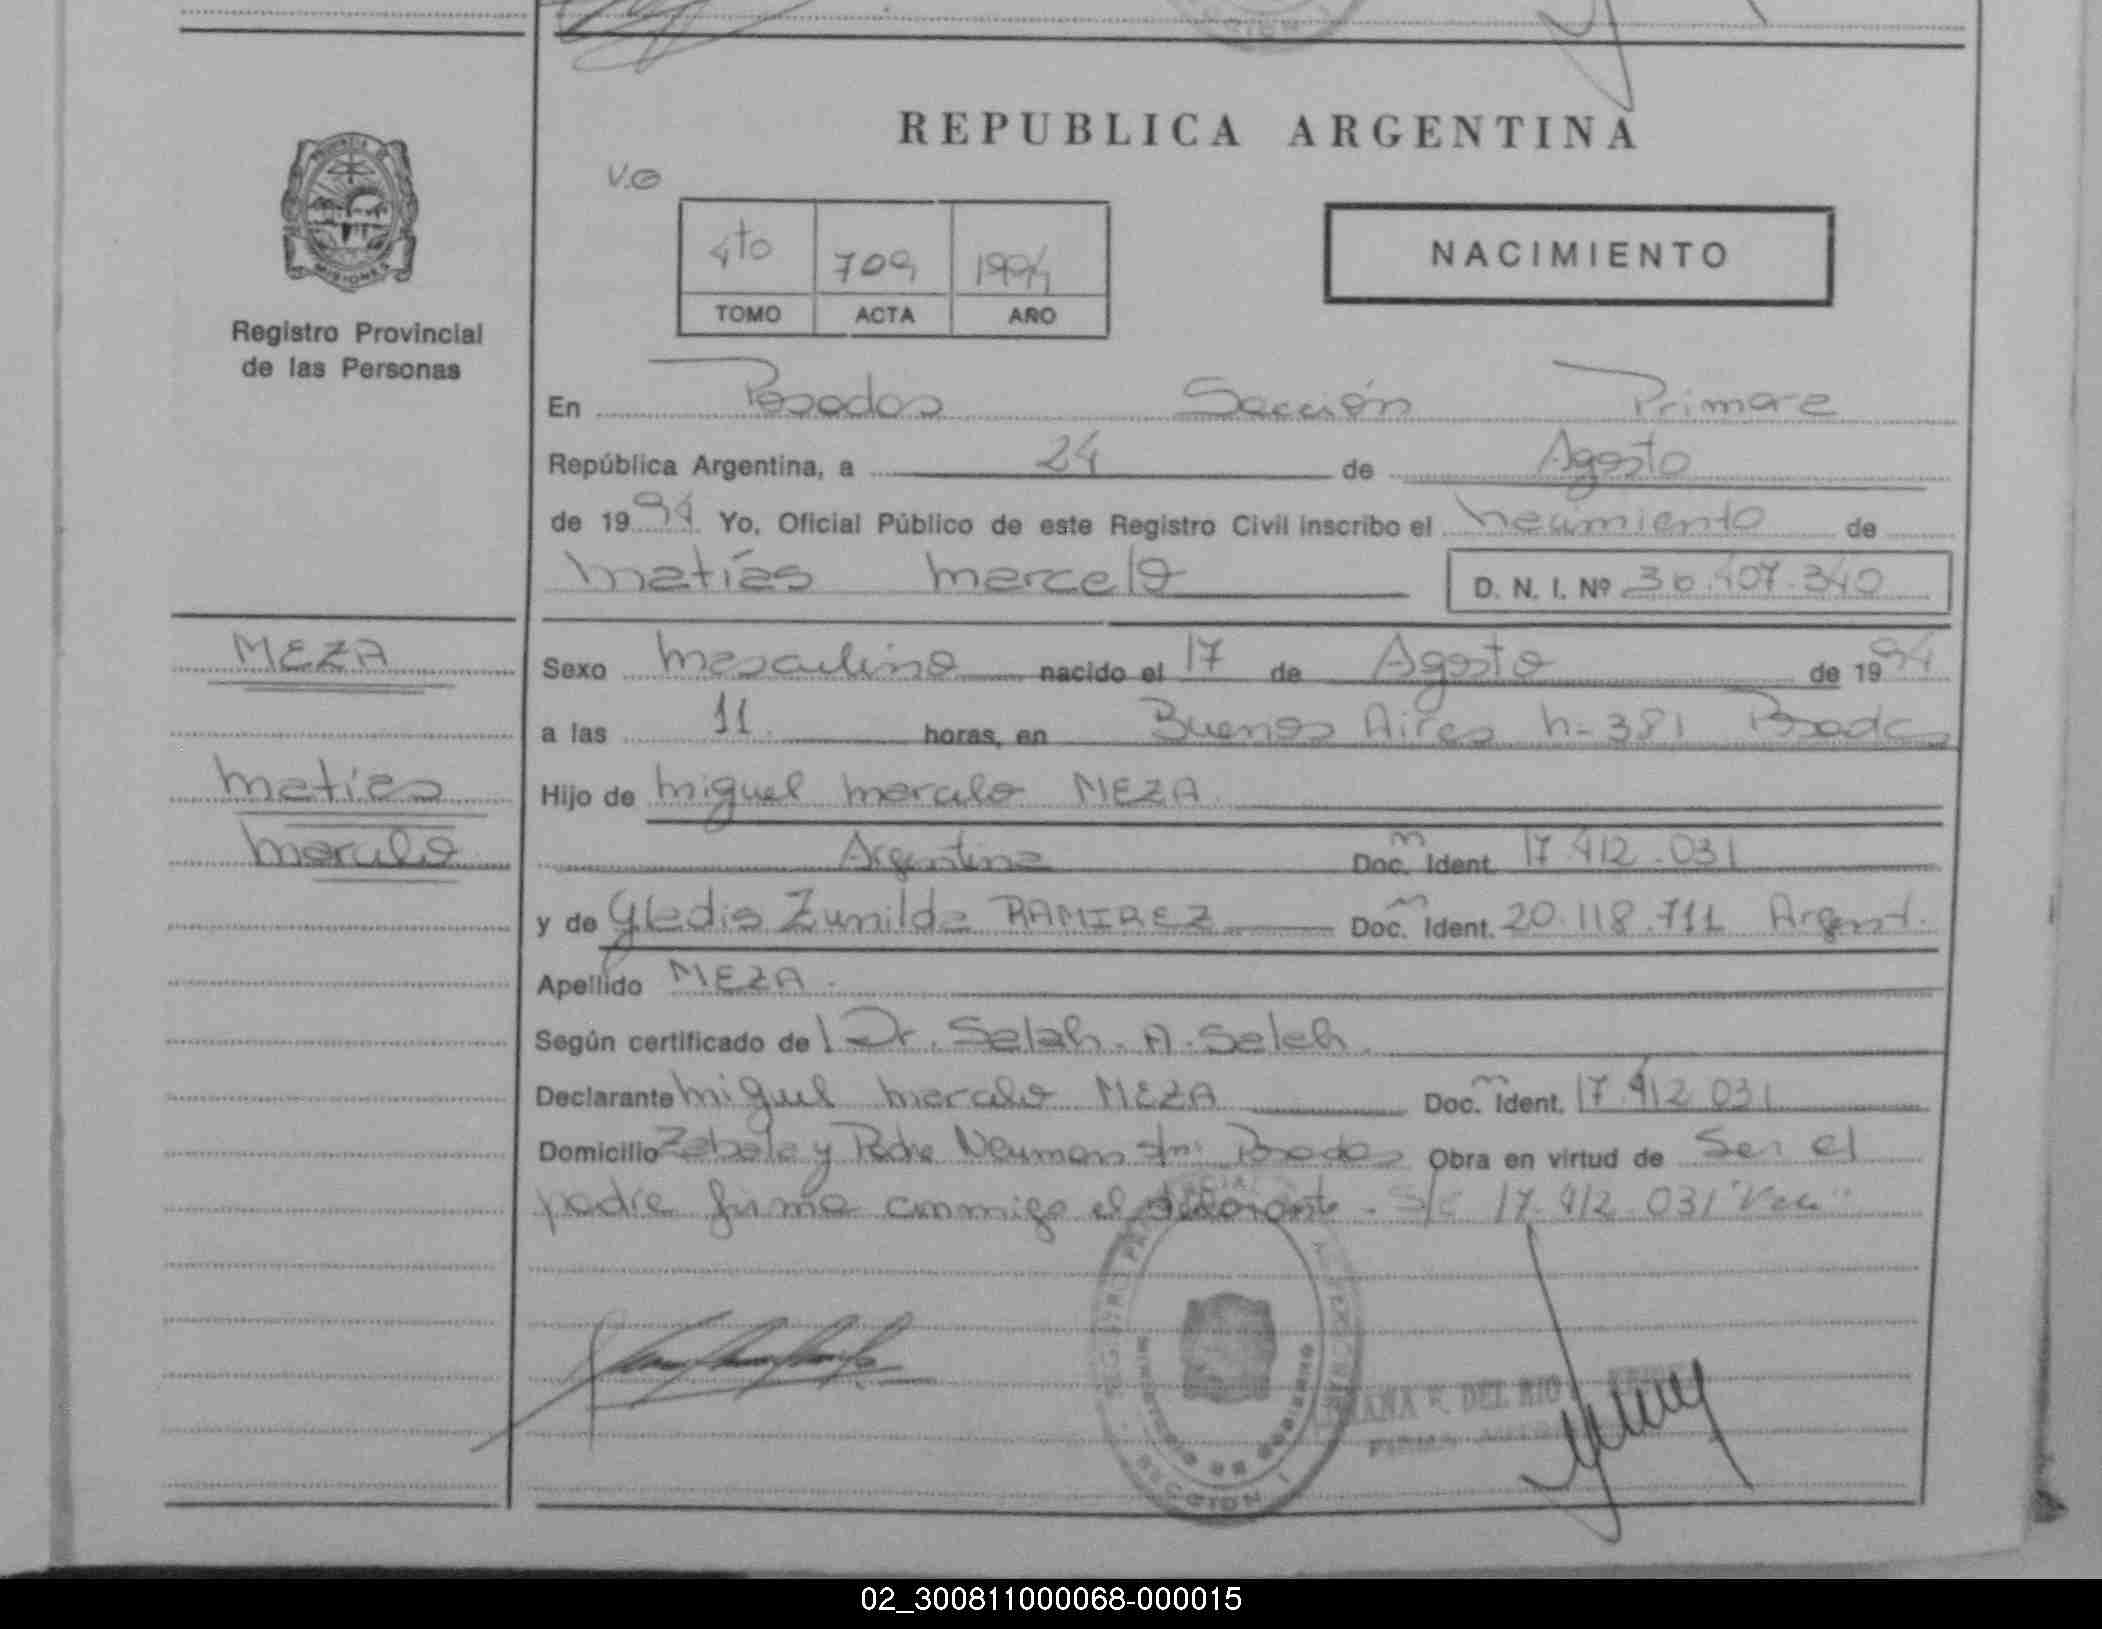 REPUBLICA ARGENTINA
V.G
4to 709 1994
TOMO ACTA AÑO
NACIMIENTO
MISIONES
Registro Provincial
de las Personas
En Posadas Sección Primera
República Argentina, a 24 de Agosto
de 1994 Yo, Oficial Público de este Registro Civil inscribo el nacimiento de
Matías Marcelo D. N. I. Nº 36.407.340
MEZA
Matías
Marcelo
Sexo Masculino nacido el 17 de Agosto de 1994
a las 11 horas, en Buenos Aires n- 381 Posadas
Hijo de Miguel Marcelo MEZA
Argentina Doc. Ident. 17.412.031
y de Gladis Zunilda RAMIREZ Doc. Ident. 20.118.711 Argent.
Apellido MEZA
Según certificado de Dr. Salah. A. Saleh
Declarante Miguel Marcelo MEZA Doc. Ident. 17.412.031
Domicilio Zabala y Padre Neuman Posadas Obra en virtud de Ser el
padre firma conmigo el declarante - S/c 17.412.031 "Vale"
DEL RIO
SECCION I
02_300811000068-000015